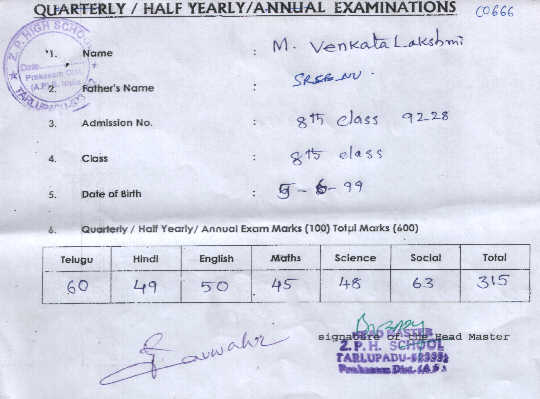 QUARTERLY / HALF YEARLY/ANNUAL EXAMINATIONS
C0666
Z. P. HIGH SCHOOL
Date
Prakasam Dist.
(A.P.)
1. Name : M. Venkata Lakshmi
2. Father's Name :
3. Admission No. : 8th class 9228
4. Class : 8th class
5. Date of Birth : 5-6-99
6. Quarterly / Half Yearly/ Annual Exam Marks (100) Total Marks (600)
Telugu Hindi English Maths Science Social Total
60 49 50 45 48 63 315
signature of the Head Master
HEAD MASTER
Z. P. H. SCHOOL
TARLUPADU-523332
Prakasam Dist. (A.P.)